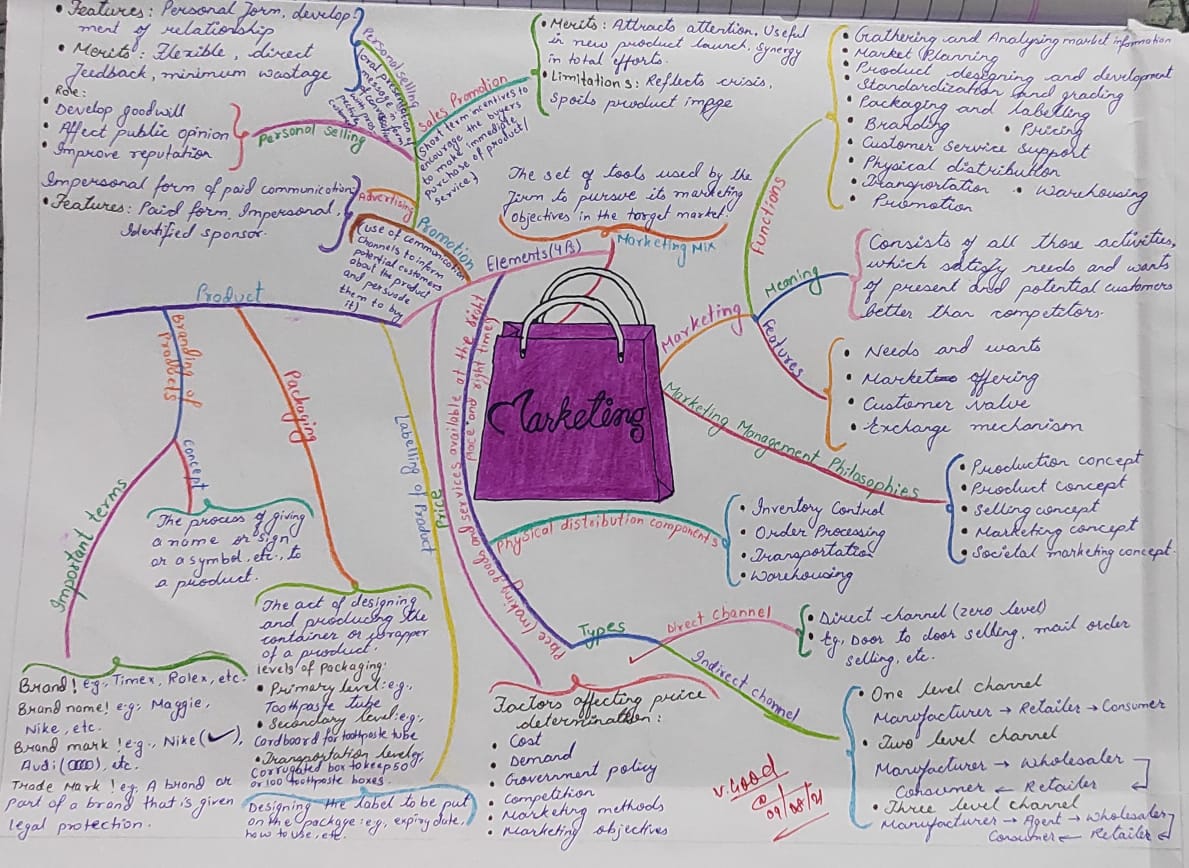 • Features: Personal form, develop
ment of relationship
• Merits: Flexible, direct
feedback, minimum wastage
Personal Selling
(oral presentation of
message in form
of conversation
with pros
Role:
• Develop goodwill
• Affect public opinion
• Improve reputation
Personal Selling
Impersonal form of paid communication
• Features: Paid form, Impersonal,
Identified sponsor.
Advertising
• Merits: Attracts attention, Useful
in new product launch, synergy
in total efforts.
• Limitations: Reflects crisis,
spoils product impge
Sales Promotion
(short term incentives to
encourage the buyers
to make immediate
purchase of product/
service)
Promotion
(use of communication
channels to inform
potential customers
about the product
and persuade
them to buy
it)
The set of tools used by the
firm to pursue its marketing
objectives in the target market.
Marketing Mix
Elements (4Ps)
Functions
• Gathering and Analysing market information
• Market Planning
• Product designing and development
• Standardization and grading
• Packaging and labelling
• Branding • Pricing
• Customer Service Support
• Physical distribution
• Transportation • Warehousing
• Promotion
Meaning
Consists of all those activities,
which satisfy needs and wants
of present and potential customers
better than competitors.
Marketing
Features
• Needs and wants
• Market offering
• Customer Value
• Exchange mechanism
Marketing Management Philosophies
• Production concept
• Product concept
• Selling concept
• Marketing concept
• Societal marketing concept.
Marketing
Product
Branding of
Products
Concept
The process of giving
a name or sign
or a symbol, etc., to
a product.
Important terms
Brand! eg., Timex, Rolex, etc.
Brand name! eg., Maggie,
Nike, etc.
Brand mark! eg., Nike (✓),
Audi (OOOO), etc.
Trade Mark! eg. A brand or
part of a brand that is given
legal protection.
Packaging
The act of designing
and producing the
container or wrapper
of a product.
levels of packaging:
• Primary level: e.g.,
Toothpaste tube
• Secondary level: eg.,
Cardboard for toothpaste tube
• Transportation level: eg,
Corrugated box to keep 50
or 100 toothpaste boxes.
Labelling of Product
Designing the label to be put
on the package: eg., expiry date,
how to use, etc.
Price
Factors affecting price
determination:
• Cost
• Demand
• Government policy
• Competition
• Marketing methods
• Marketing objectives
Place (making goods and services available at the right
place and right time)
Physical distribution components
• Inventory Control
• Order Processing
• Transportation
• Warehousing
Types
Direct Channel
• Direct channel (zero level)
• Eg, Door to door selling, mail order
selling, etc.
Indirect channel
• One level channel
Manufacturer → Retailer → Consumer
• Two level channel
Manufacturer → Wholesaler
Consumer ← Retailer ←
• Three level channel
Manufacturer → Agent → Wholesaler
Consumer ← Retailer ←
V.Good
09/08/21